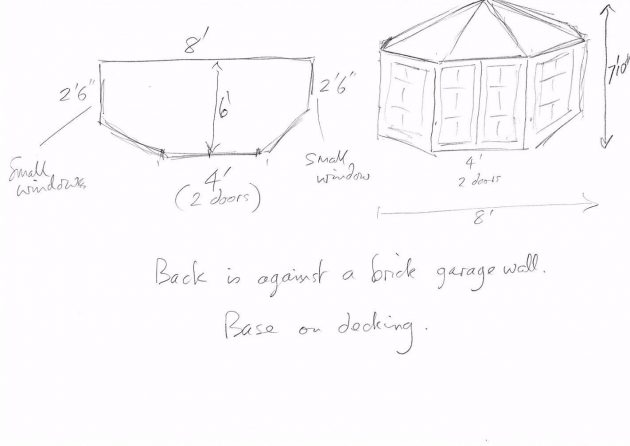 8'
2'6"
6'
2'6"
Small
windows
small
window
4'
(2 doors)
7'10"
4'
2 doors
8'
Back is against a brick garage wall.
Base on decking.